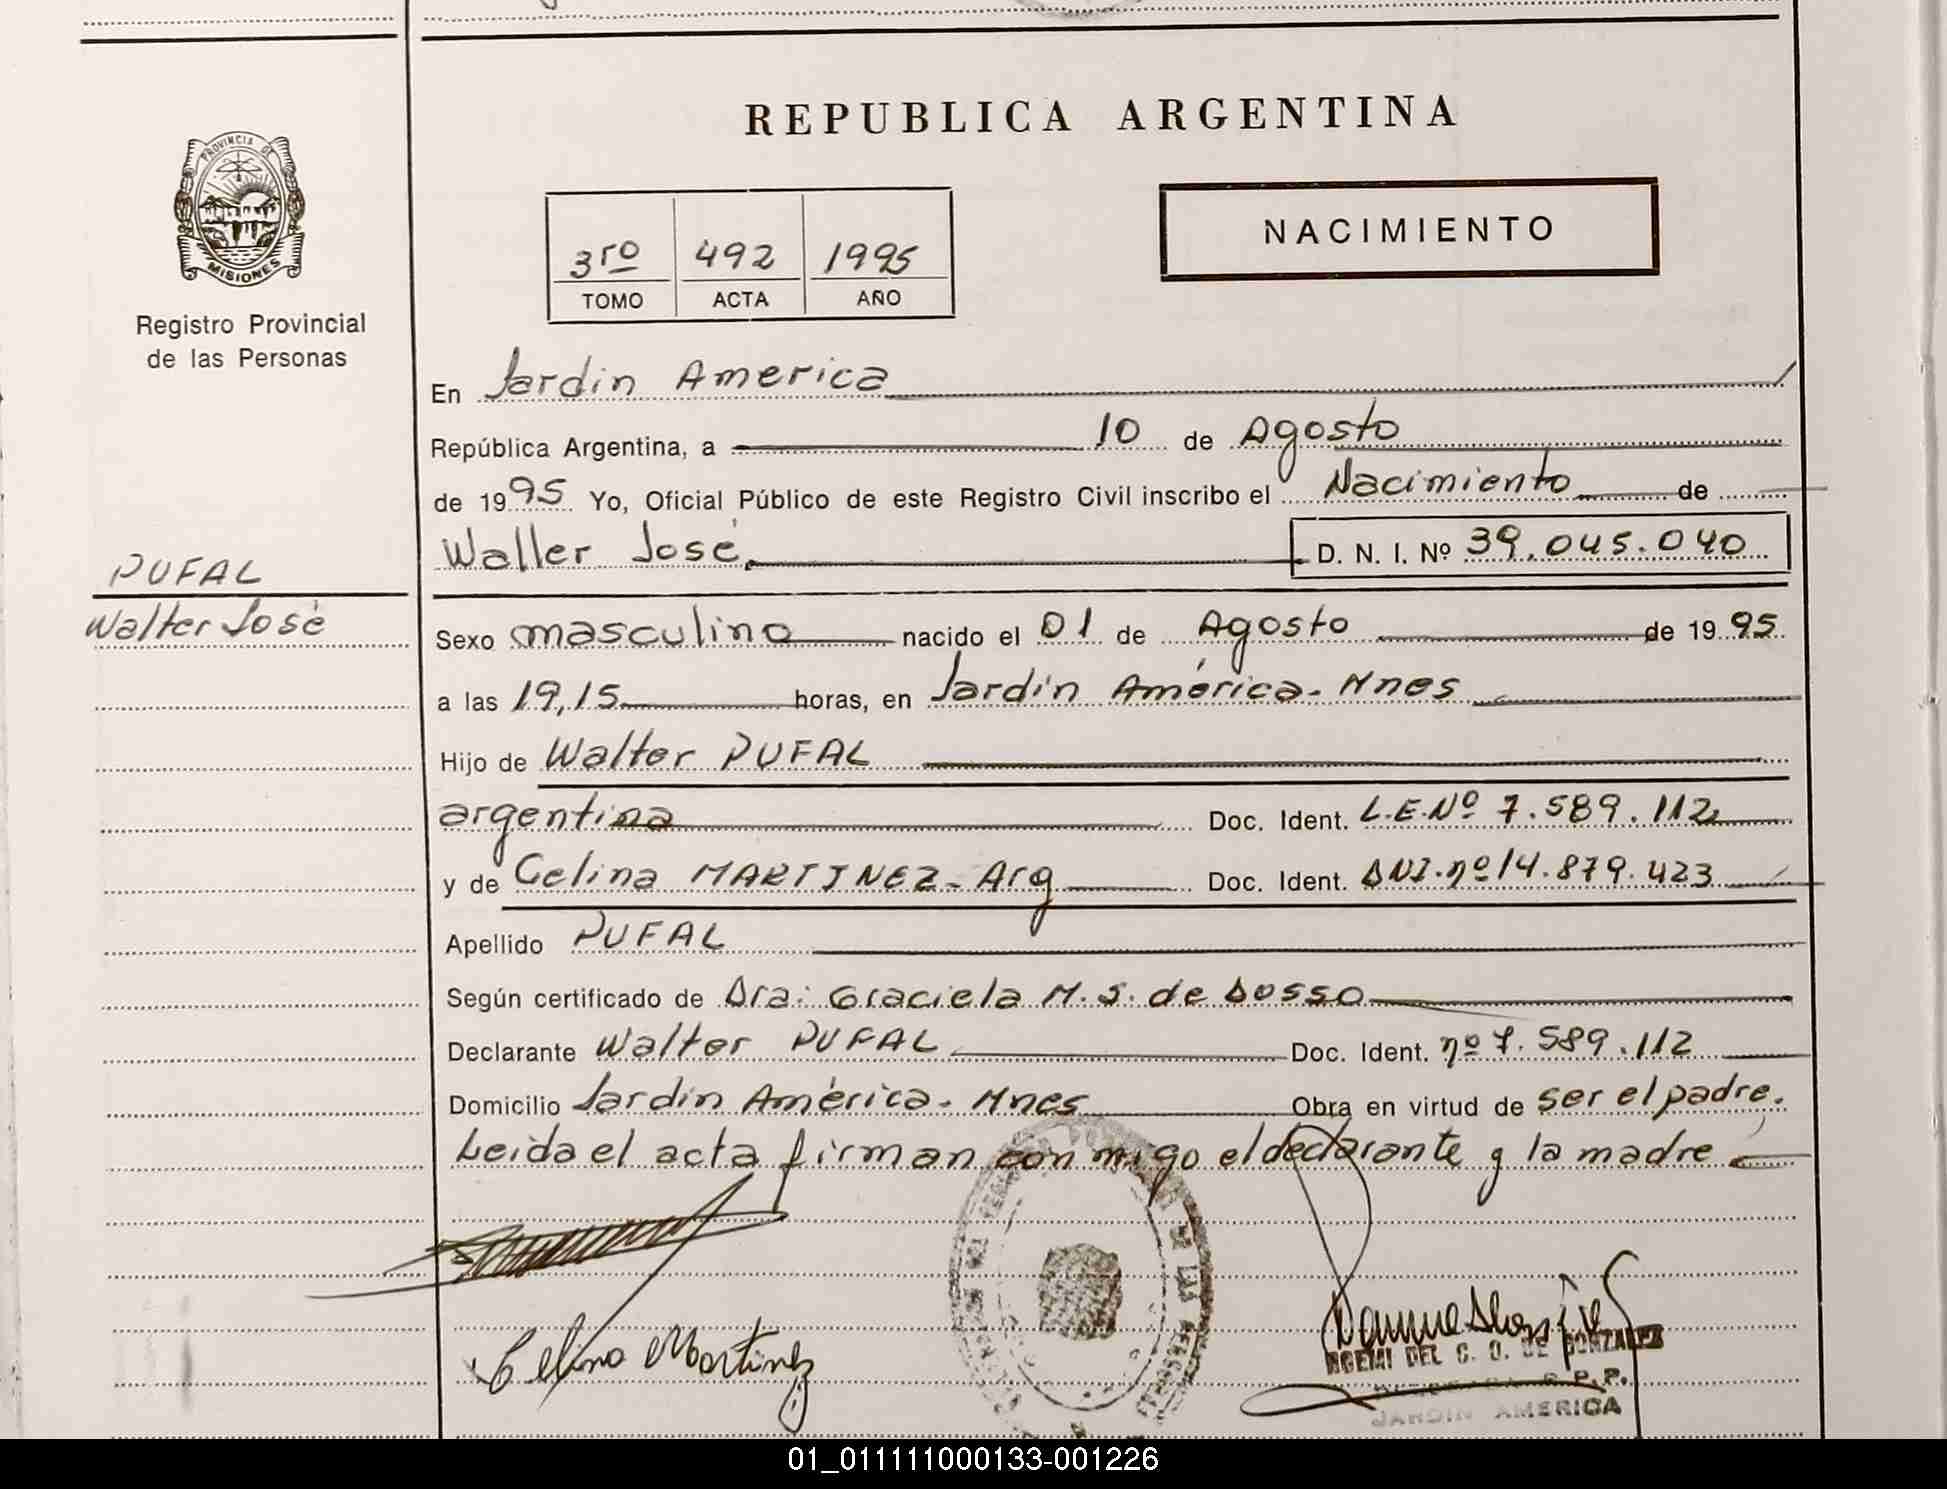 REPUBLICA ARGENTINA
PROVINCIA DE
MISIONES
Registro Provincial
de las Personas
3ro 492 1995
TOMO ACTA AÑO
NACIMIENTO
En Jardin America
República Argentina, a 10 de Agosto
de 1995 Yo, Oficial Público de este Registro Civil inscribo el Nacimiento de
Walter José, D. N. I. Nº 39.045.040
PUFAL
Walter José
Sexo masculino nacido el 01 de Agosto de 1995
a las 19,15 horas, en Jardín América - Mnes
Hijo de Walter PUFAL
argentina Doc. Ident. L.E.Nº 7.589.112
y de Celina MARTINEZ - Arg Doc. Ident. DNI.nº 14.879.423
Apellido PUFAL
Según certificado de Dra: Graciela M. S. de Dosso
Declarante Walter PUFAL Doc. Ident. nº 7.589.112
Domicilio Jardín América - Mnes Obra en virtud de ser el padre.
Leida el acta firman con migo el declarante y la madre
Celina Martinez
NOEMI DEL C. O. DE GONZALEZ
R.P.P.
JARDIN AMERICA
01_011111000133-001226